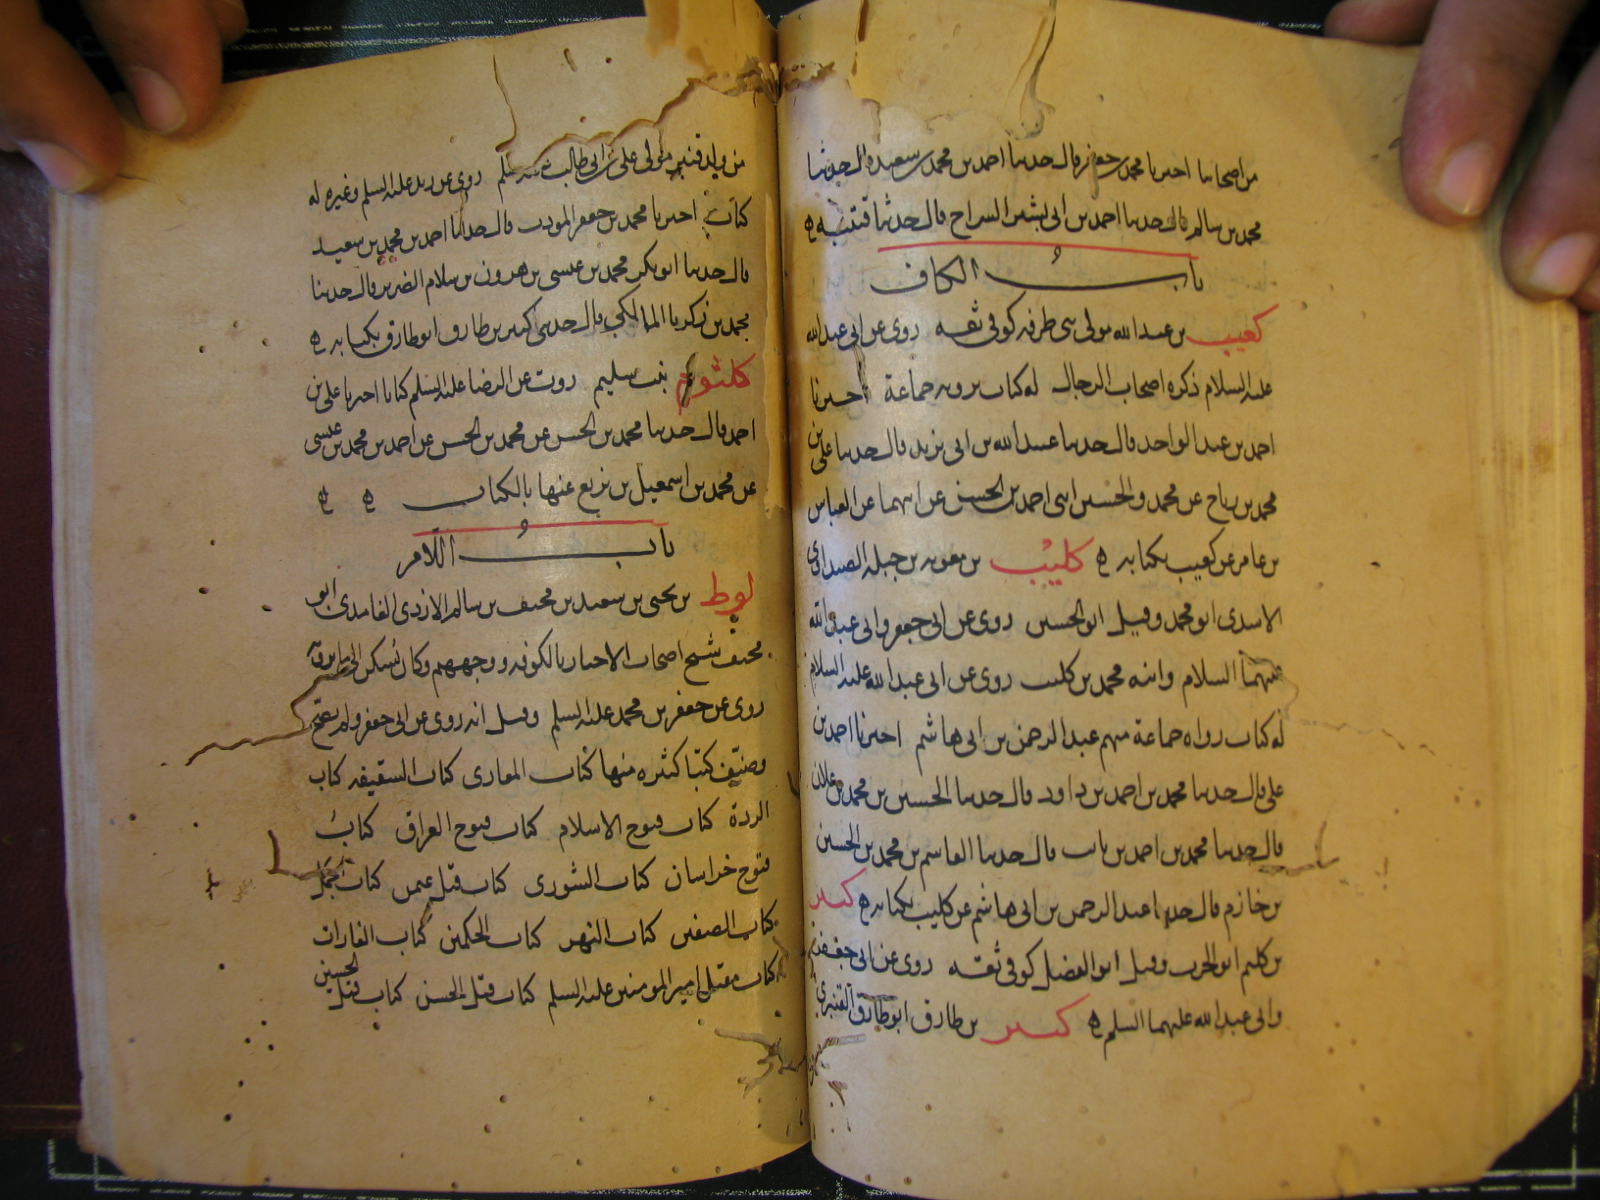 من اصحابنا اخبرنا محمد بن جعفر قال حدثنا احمد بن محمد بن سعيد قال حدثنا
محمد بن سالم قال حدثنا احمد بن ابي بشر السراج قال حدثنا قتيبه ه
باب الكاف
كعيب بن عبد الله مولى بنى طرفه كوفى ثقه روى عن ابى عبد الله
عليه السلام ذكره اصحاب الرجال له كتاب يرويه جماعة اخبرنا
احمد بن عبد الواحد قال حدثنا عبيد الله بن ابى يزيد قال حدثنا على بن
محمد بن رباح عن محمد والحسين ابنى احمد بن الحسن عن ابيهما عن العباس
بن عامر عن كعيب بكتابه ه كليب بن معويه بن جبله الصيداوى
الاسدى ابو محمد وقيل ابو الحسين روى عن ابى جعفر وابى عبد الله
عليهما السلام وابنه محمد بن كليب روى عن ابى عبد الله عليه السلام
له كتاب رواه جماعة منهم عبد الرحمن بن ابى هاشم اخبرنا احمد بن
على قال حدثنا محمد بن احمد بن داود قال حدثنا الحسين بن محمد بن علان
قال حدثنا محمد بن احمد بن ثابت قال حدثنا القاسم بن محمد بن الحسين
بن خازم قال حدثنا عبد الرحمن بن ابى هاشم عن كليب بكتابه ه كثير
بن كلثم ابو الحرب وقيل ابو الفضل كوفى ثقه روى عن ابى جعفر
وابى عبد الله عليهما السلم ه كثير بن طارق ابو طارق القنبرى
من ولد قنبر مولى على بن ابى طالب عليه السلم روى عن زيد عليه السلم وغيره له
كتاب اخبرنا محمد بن جعفر المودب قال حدثنا احمد بن محمد بن سعيد
قال حدثنا ابو بكر محمد بن عيسى بن هرون بن سلام الضرير قال حدثنا
محمد بن زكريا المالكى قال حدثنى كثير بن طارق ابو طارق بكتابه ه
كلثوم بنت سليم روت عن الرضا عليه السلم كتابا اخبرنا على بن
احمد قال حدثنا محمد بن الحسن عن محمد بن الحسن عن احمد بن محمد بن عيسى
عن محمد بن اسمعيل بن بزيع عنها بالكتاب ه ه
باب اللام
لوط بن يحيى بن سعيد بن مخنف بن سالم الازدى الغامدى ابو
مخنف شيخ اصحاب الاخبار بالكوفه ووجههم وكان يسكن الى ما يرويه
روى عن جعفر بن محمد عليه السلم وقيل انه روى عن ابى جعفر ولم يصح
وصنف كتبا كثيره منها كتاب المغازى كتاب السقيفه كتاب
الردة كتاب فتوح الاسلام كتاب فتوح العراق كتاب
فتوح خراسان كتاب الشورى كتاب قتل عثمن كتاب الجمل
كتاب الصفين كتاب النهر كتاب الحكمين كتاب الغارات
كتاب مقتل امير المومنين عليه السلم كتاب قتل الحسن كتاب قتل الحسين